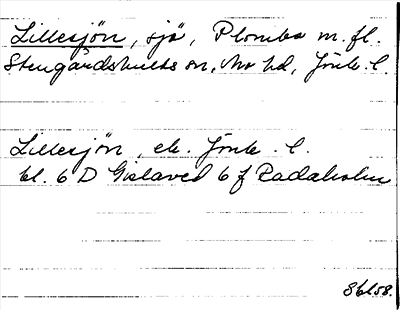 Lillesjön, sjö, Plomba m. fl.
Stengårdshults sn, Mo hd, Jönk. l.
Lillesjön, ek. Jönk. l.
bl. 6 D Gislaved 6 f Radaholm